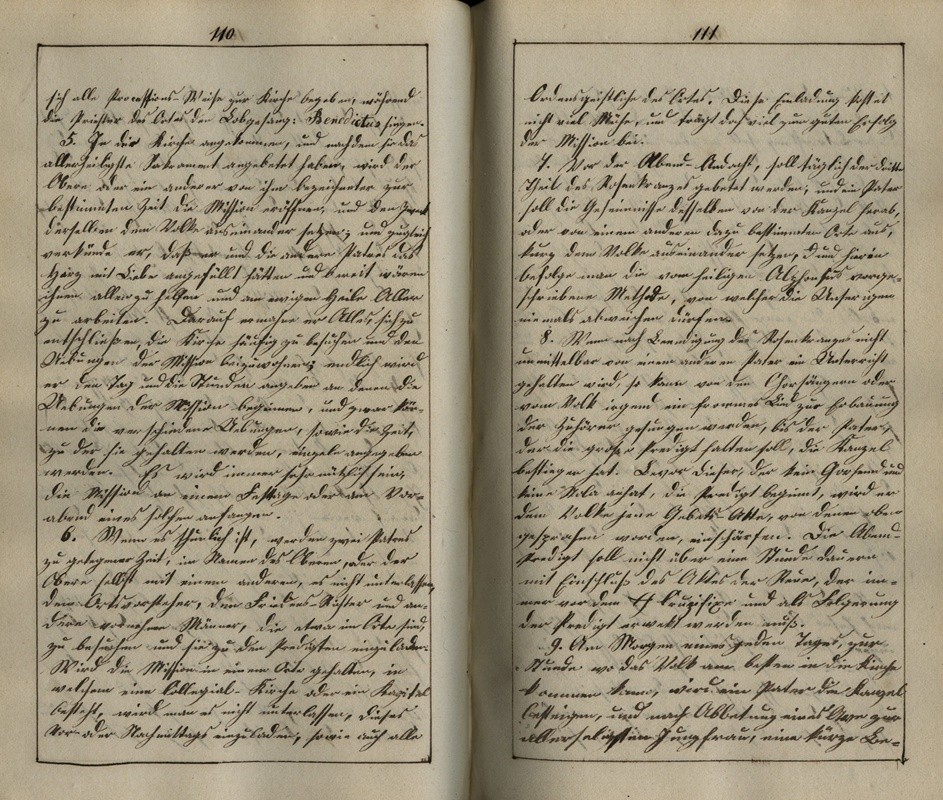 110
sich alle Processions-Weise zur Kirche begeben, während
die Priester des Ortes den Lobgesang: Benedictus singen.
5. In der Kirche angekommen, und nachdem sie das
allerheiligste Sakrament angebetet haben, wird der
Obere oder ein anderer von ihm bezeichneter zur
bestimmten Zeit die Mission eröffnen, und den Zweck
derselben dem Volke auseinander setzen; und zugleich
verkünde er, daß er und die andern Patres das
Herz mit Liebe angefüllt hätten und bereit wären
ihnen allen zu helfen und am ewigen Heile Aller
zu arbeiten. Darauf ermahne er Alle, sich zu
entschließen, die Kirche häufig zu besuchen und den
Uebungen der Mission beizuwohnen; endlich wird
er den Tag und die Stunden angeben an denen die
Uebungen der Mission beginnen, und zwar kön-
nen die verschiedene Uebungen, sowie die Zeit,
zu der sie gehalten werden, einzeln angegeben
werden. Es wird immer sehr nützlich sein,
die Mission an einem Festtage oder am Vor-
abend eines solchen anfangen.
6. Wenn es thunlich ist, werden zwei Patres
zu gelegener Zeit, im Namen des Obern, oder der
Obere selbst mit einem anderen, es nicht unterlassen,
den Ortsvorsteher, den Friedens-Richter und an-
dere vornehme Männer, die etwa im Orte sind,
zu besuchen und sie zu den Predigten einzuladen.
Wird die Mission in einem Orte gehalten, in
welchem eine Collegial-Kirche oder ein Kapitel
besteht, wird man es nicht unterlassen, dieses
Vor- oder Nachmittags einzuladen, sowie auch alle
111
Ordensgeistliche des Ortes. Diese Einladung kostet
nicht viel Mühe, und trägt doch viel zum guten Erfolg
der Mission bei.
7. Vor der Abend-Andacht, soll täglich der dritte
Theil des Rosenkranzes gebetet werden, und ein Pater
soll die Geheimnisse desselben von der Kanzel herab,
oder von einem anderen dazu bestimmten Orte aus,
kurz dem Volke auseinander setzen, und hierin
befolge man die vom heiligen Alphonsus vorge-
schriebene Methode, von welcher die Unserigen
niemals abweichen dürfen.
8. Wenn nach Beendigung des Rosenkranzes nicht
unmittelbar von einem anderen Pater ein Unterricht
gehalten wird, so kann von den Chorsängern oder
vom Volk irgend ein frommes Lied zur Erbauung
der Zuhörer gesungen werden, bis der Pater,
der die große Predigt halten soll, die Kanzel
bestiegen hat. Bevor dieser, der kein Chorhemd und
keine Stola anhat, die Predigt beginnt, wird er
dem Volke jene Gebets-Akte, von denen oben
gesprochen worden, einschärfen. Die Abend-
Predigt soll nicht über eine Stunde dauern
mit Einschluß des Aktes der Reue, der im-
mer vor dem Crucifixe und als Folgerung
der Predigt erweckt werden muß.
9. Am Morgen eines jeden Tages, zur
Stunde wo das Volk am besten in die Kirche
kommen kann, wird ein Pater die Kanzel
besteigen, und nach Abbetung eines Ave zur
allerseligsten Jungfrau, eine kurze Be-